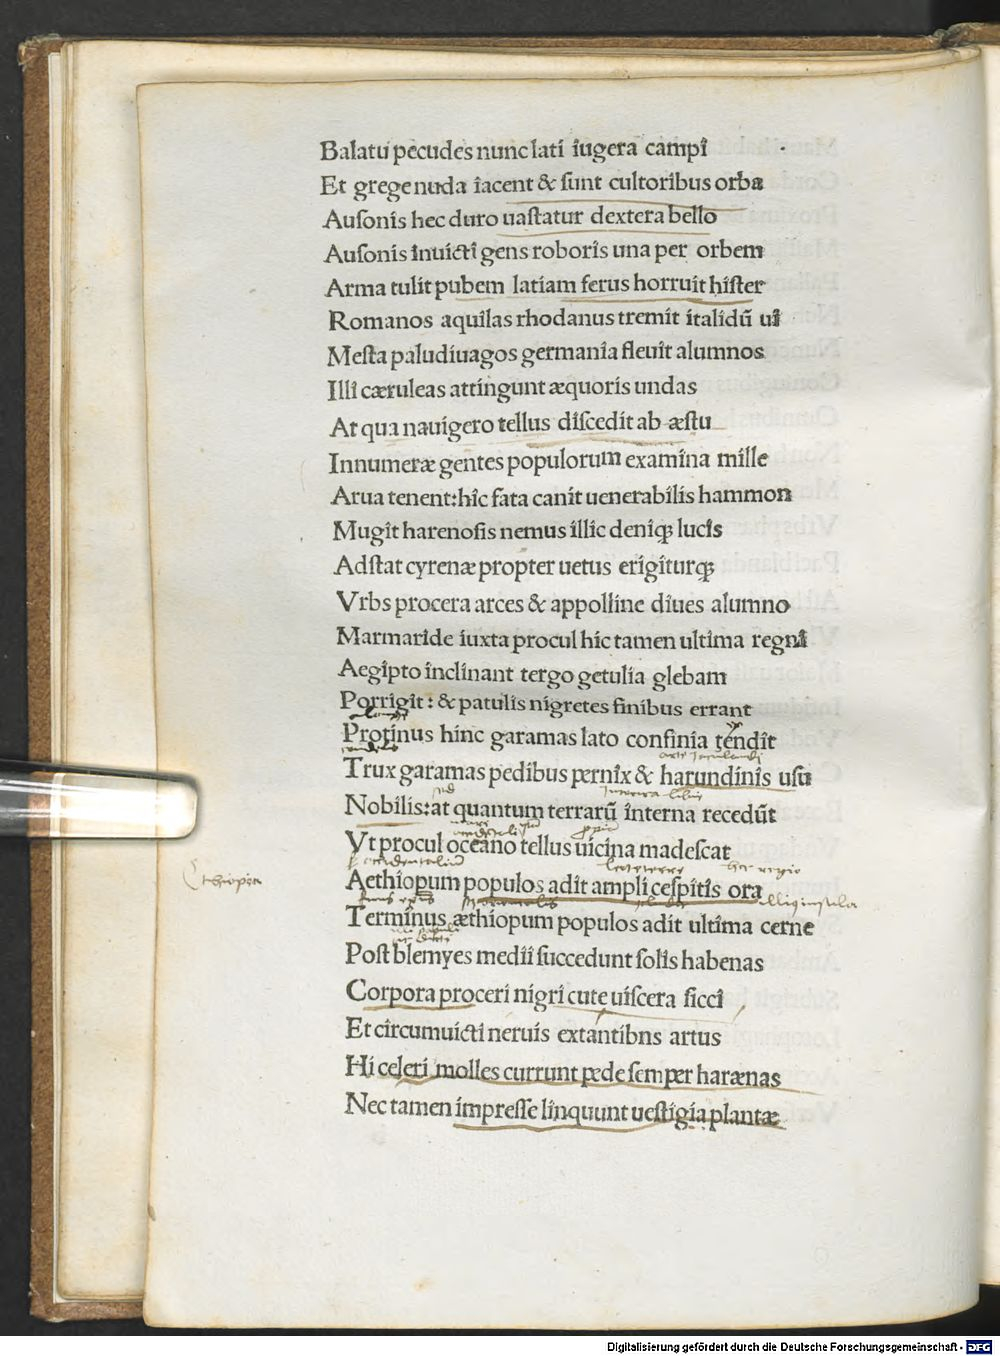 Balatu pecudes nunc lati iugera campi
Et grege nuda iacent & sunt cultoribus orba
Ausonis hec duro uastatur dextera bello
Ausonis inuicti gens roboris una per orbem
Arma tulit pubem latiam ferus horruit hister
Romanos aquilas rhodanus tremit italidū ui
Mesta paludiuagos germania fleuit alumnos
Illi cæruleas attingunt æquoris undas
At qua nauigero tellus discedit ab æstu
Innumeræ gentes populorum examina mille
Arua tenent:hic fata canit uenerabilis hammon
Mugit harenosis nemus illic deniqꝫ lucis
Adstat cyrenæ propter uetus erigiturqꝫ
Vrbs procera arces & appolline diues alumno
Marmaride iuxta procul hic tamen ultima regni
Aegipto inclinant tergo getulia glebam
Porrigit: & patulis nigretes finibus errant
Protinus hinc garamas lato confinia tendit
Trux garamas pedibus pernix & harundinis usu
Nobilis:at quantum terrarū interna recedūt
Vt procul oceano tellus uicina madescat
Aethiopum populos adit ampli cespitis ora
Terminus æthiopum populos adit ultima cerne
Post blemyes medii succedunt solis habenas
Corpora proceri nigri cute uiscera sicci
Et circumuicti neruis extantibns artus
Hi celeri molles currunt pede semper haraenas
Nec tamen impresse linquunt uestigia plantæ
Digitalisierung gefördert durch die Deutsche Forschungsgemeinschaft - DFG